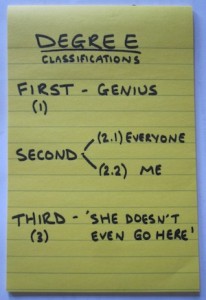 DEGREE
CLASSIFICATIONS
FIRST - GENIUS
(1)
(2.1) EVERYONE
SECOND
(2.2) ME
THIRD - 'SHE DOESN'T
(3) EVEN GO HERE'